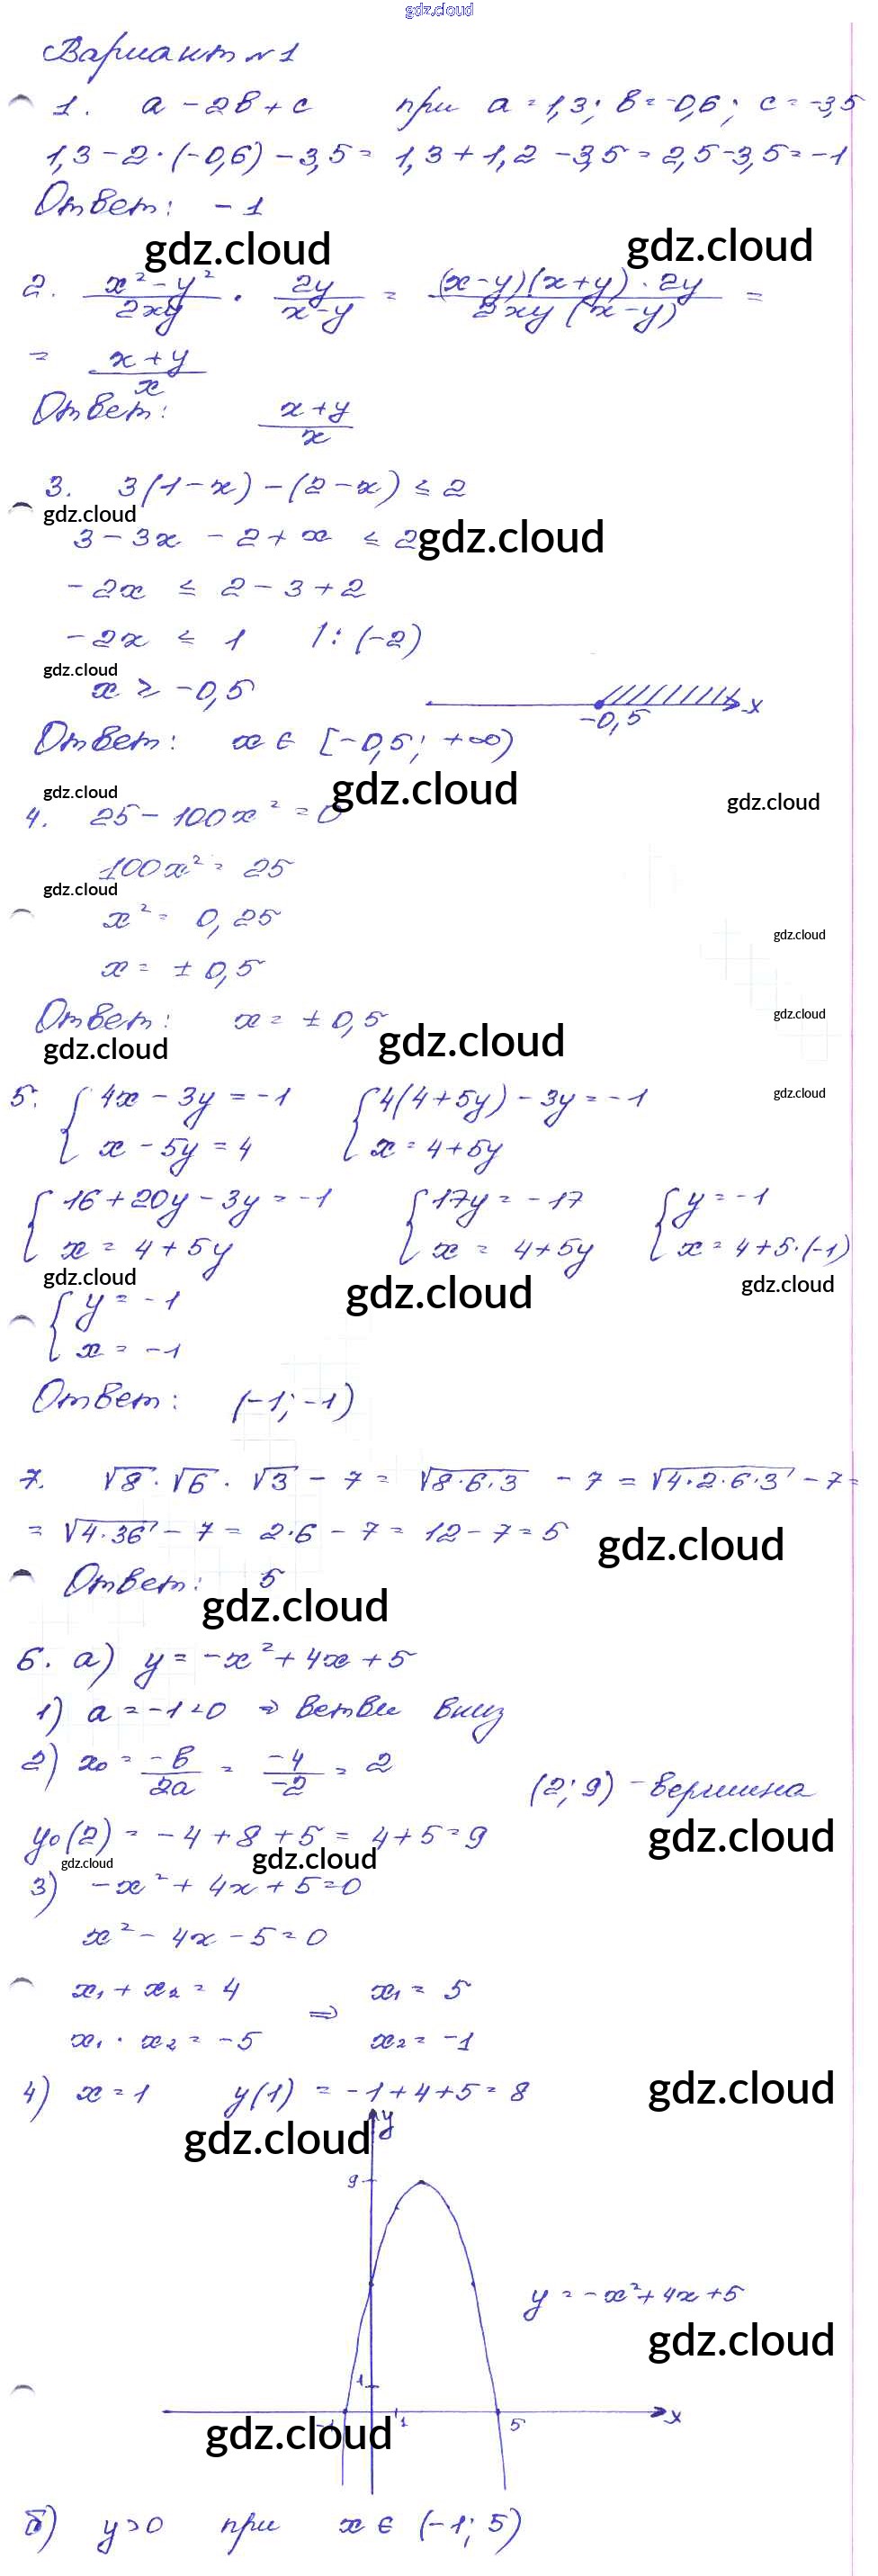 gdz.cloud
Вариант №1
1. a - 2b + c при a = 1,3; b = -0,6; c = -3,5
1,3 - 2·(-0,6) - 3,5 = 1,3 + 1,2 - 3,5 = 2,5 - 3,5 = -1
Ответ: -1
gdz.cloud gdz.cloud
2. (x² - y²)/(2xy) · 2y/(x - y) = ((x-y)(x+y)·2y)/(2xy(x-y)) =
= (x+y)/x
Ответ: (x+y)/x
3. 3(1-x) - (2-x) ≤ 2
gdz.cloud
3 - 3x - 2 + x ≤ 2
gdz.cloud
-2x ≤ 2 - 3 + 2
-2x ≤ 1 |: (-2)
gdz.cloud
x ≥ -0,5
-0,5 x
Ответ: x ∈ [-0,5; +∞)
gdz.cloud gdz.cloud gdz.cloud
4. 25 - 100x² = 0
100x² = 25
gdz.cloud
x² = 0,25
gdz.cloud
x = ± 0,5
gdz.cloud
Ответ: x = ± 0,5
gdz.cloud gdz.cloud
gdz.cloud
5. { 4x - 3y = -1 { 4(4+5y) - 3y = -1
x - 5y = 4 x = 4+5y
{ 16 + 20y - 3y = -1 { 17y = -17 { y = -1
x = 4 + 5y x = 4+5y x = 4+5·(-1)
gdz.cloud gdz.cloud gdz.cloud
{ y = -1
x = -1
Ответ: (-1; -1)
7. √8 · √6 · √3 - 7 = √8·6·3 - 7 = √4·2·6·3 - 7 =
= √4·36 - 7 = 2·6 - 7 = 12 - 7 = 5
gdz.cloud
Ответ: 5
gdz.cloud
6. а) y = -x² + 4x + 5
1) a = -1 < 0 ⇒ ветви вниз
2) x₀ = -b/2a = -4/-2 = 2
(2; 9) - вершина
y₀(2) = -4 + 8 + 5 = 4 + 5 = 9
gdz.cloud gdz.cloud gdz.cloud
3) -x² + 4x + 5 = 0
x² - 4x - 5 = 0
x₁ + x₂ = 4 ⇒ x₁ = 5
x₁ · x₂ = -5 x₂ = -1
4) x = 1 y(1) = -1 + 4 + 5 = 8
gdz.cloud
gdz.cloud
y
9
y = -x² + 4x + 5
gdz.cloud
1
-1 1 5 x
gdz.cloud
б) y > 0 при x ∈ (-1; 5)